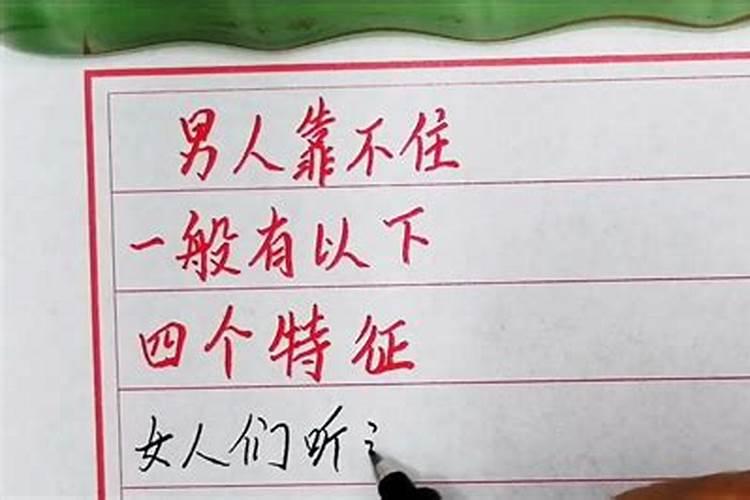 男人靠不住
一般有以下
四个特征
女人们听